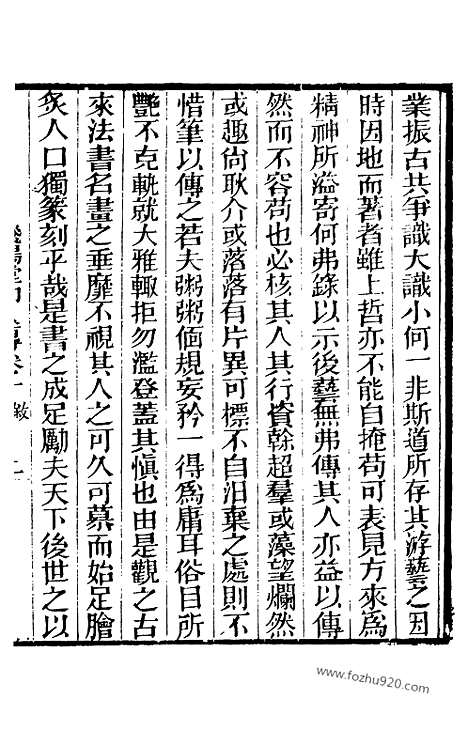 業振古共爭識大識小何一非斯道所存其游藝之因
時因地而著者雖上哲亦不能自掩苟可表見方來為
精神所溢寄何弗錄以示後藝無弗傳其人亦益以傳
然而不容苟也必核其人其行資幹超羣或藻望爛然
或趣尙耿介或落落有片異可標不自汨棄之處則不
惜筆以傳之若夫粥粥偭規妄矜一得為庸耳俗目所
艷不克軌就大雅輙拒勿濫登蓋其慎也由是觀之古
來法書名畫之垂靡不視其人之可久可慕而始足膾
炙人口獨篆刻乎哉是書之成足勵夫天下後世之以
飛鴻堂印人傳卷一 敘
www.fozhu920.com